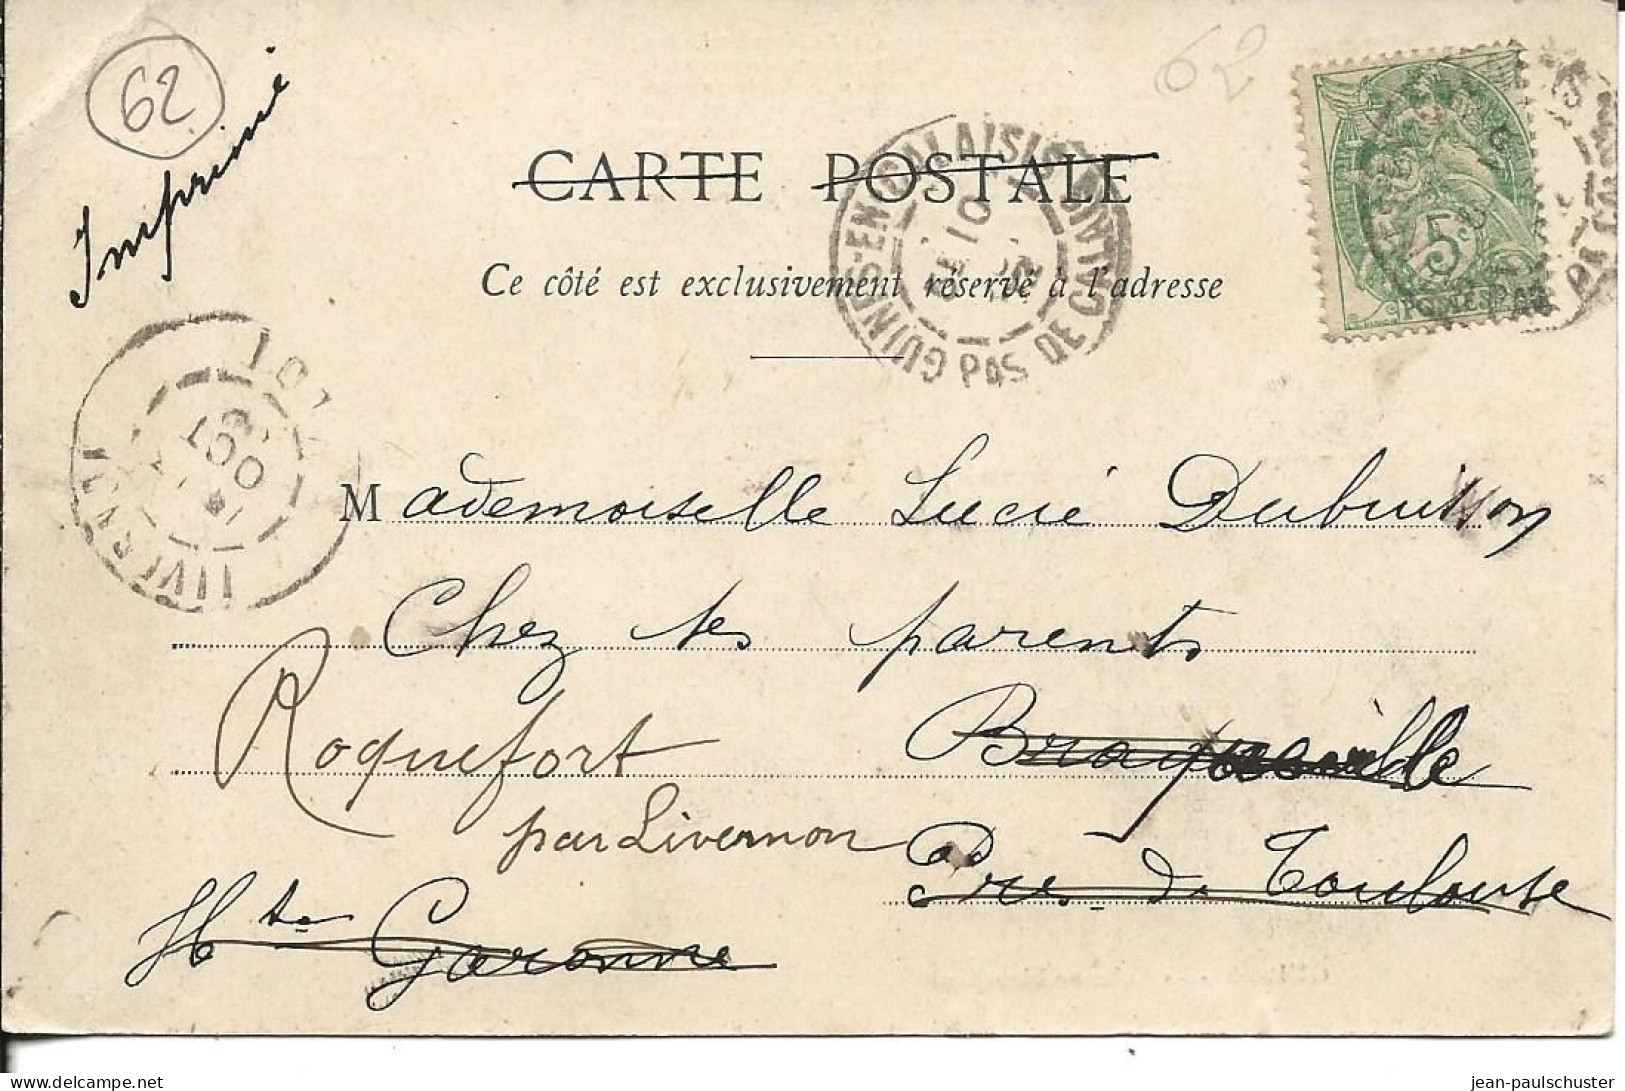 62
62
Imprimé
CARTE POSTALE
Ce côté est exclusivement réservé à l'adresse
GUINES-EN-CALAISIS
PAS DE CALAIS
10
LOT
OCT
5c
POSTES
Mademoiselle Lucie Dubuisson
Chez ses parents
Roquefort
par Livernon
Braqueville
Près de Toulouse
Hte Garonne
delcampe.net
jean-paulschuster